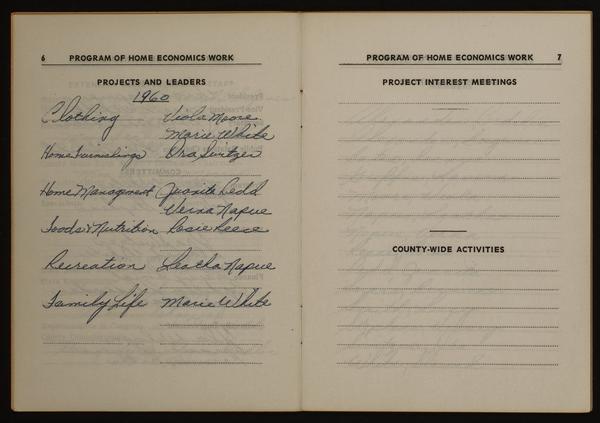 6 PROGRAM OF HOME ECONOMICS WORK
PROJECTS AND LEADERS
1960
Clothing Viola Moore
Marie White
Home Furnishings Ora Switzer
Home Management Juanita Redd
Verna Napue
Foods & Nutrition Rosie Reece
Recreation Leatha Napue
Family Life Marie White
PROGRAM OF HOME ECONOMICS WORK 7
PROJECT INTEREST MEETINGS
COUNTY-WIDE ACTIVITIES